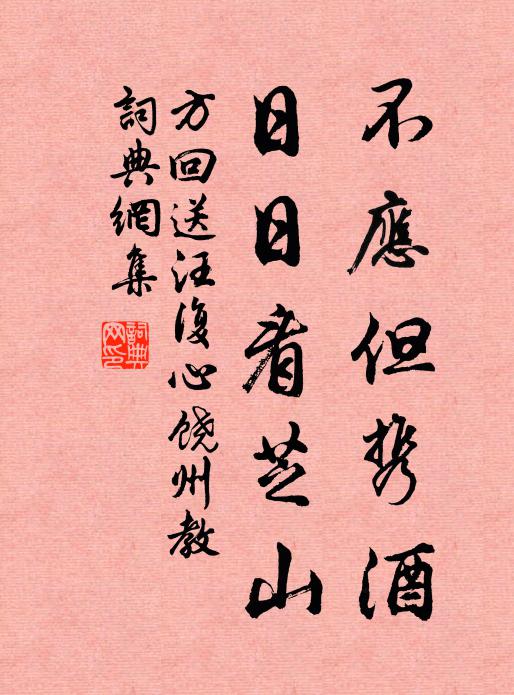 不應但携酒
日日看芝山
方回送汪復心饶州教
詞典網集
詞典網印